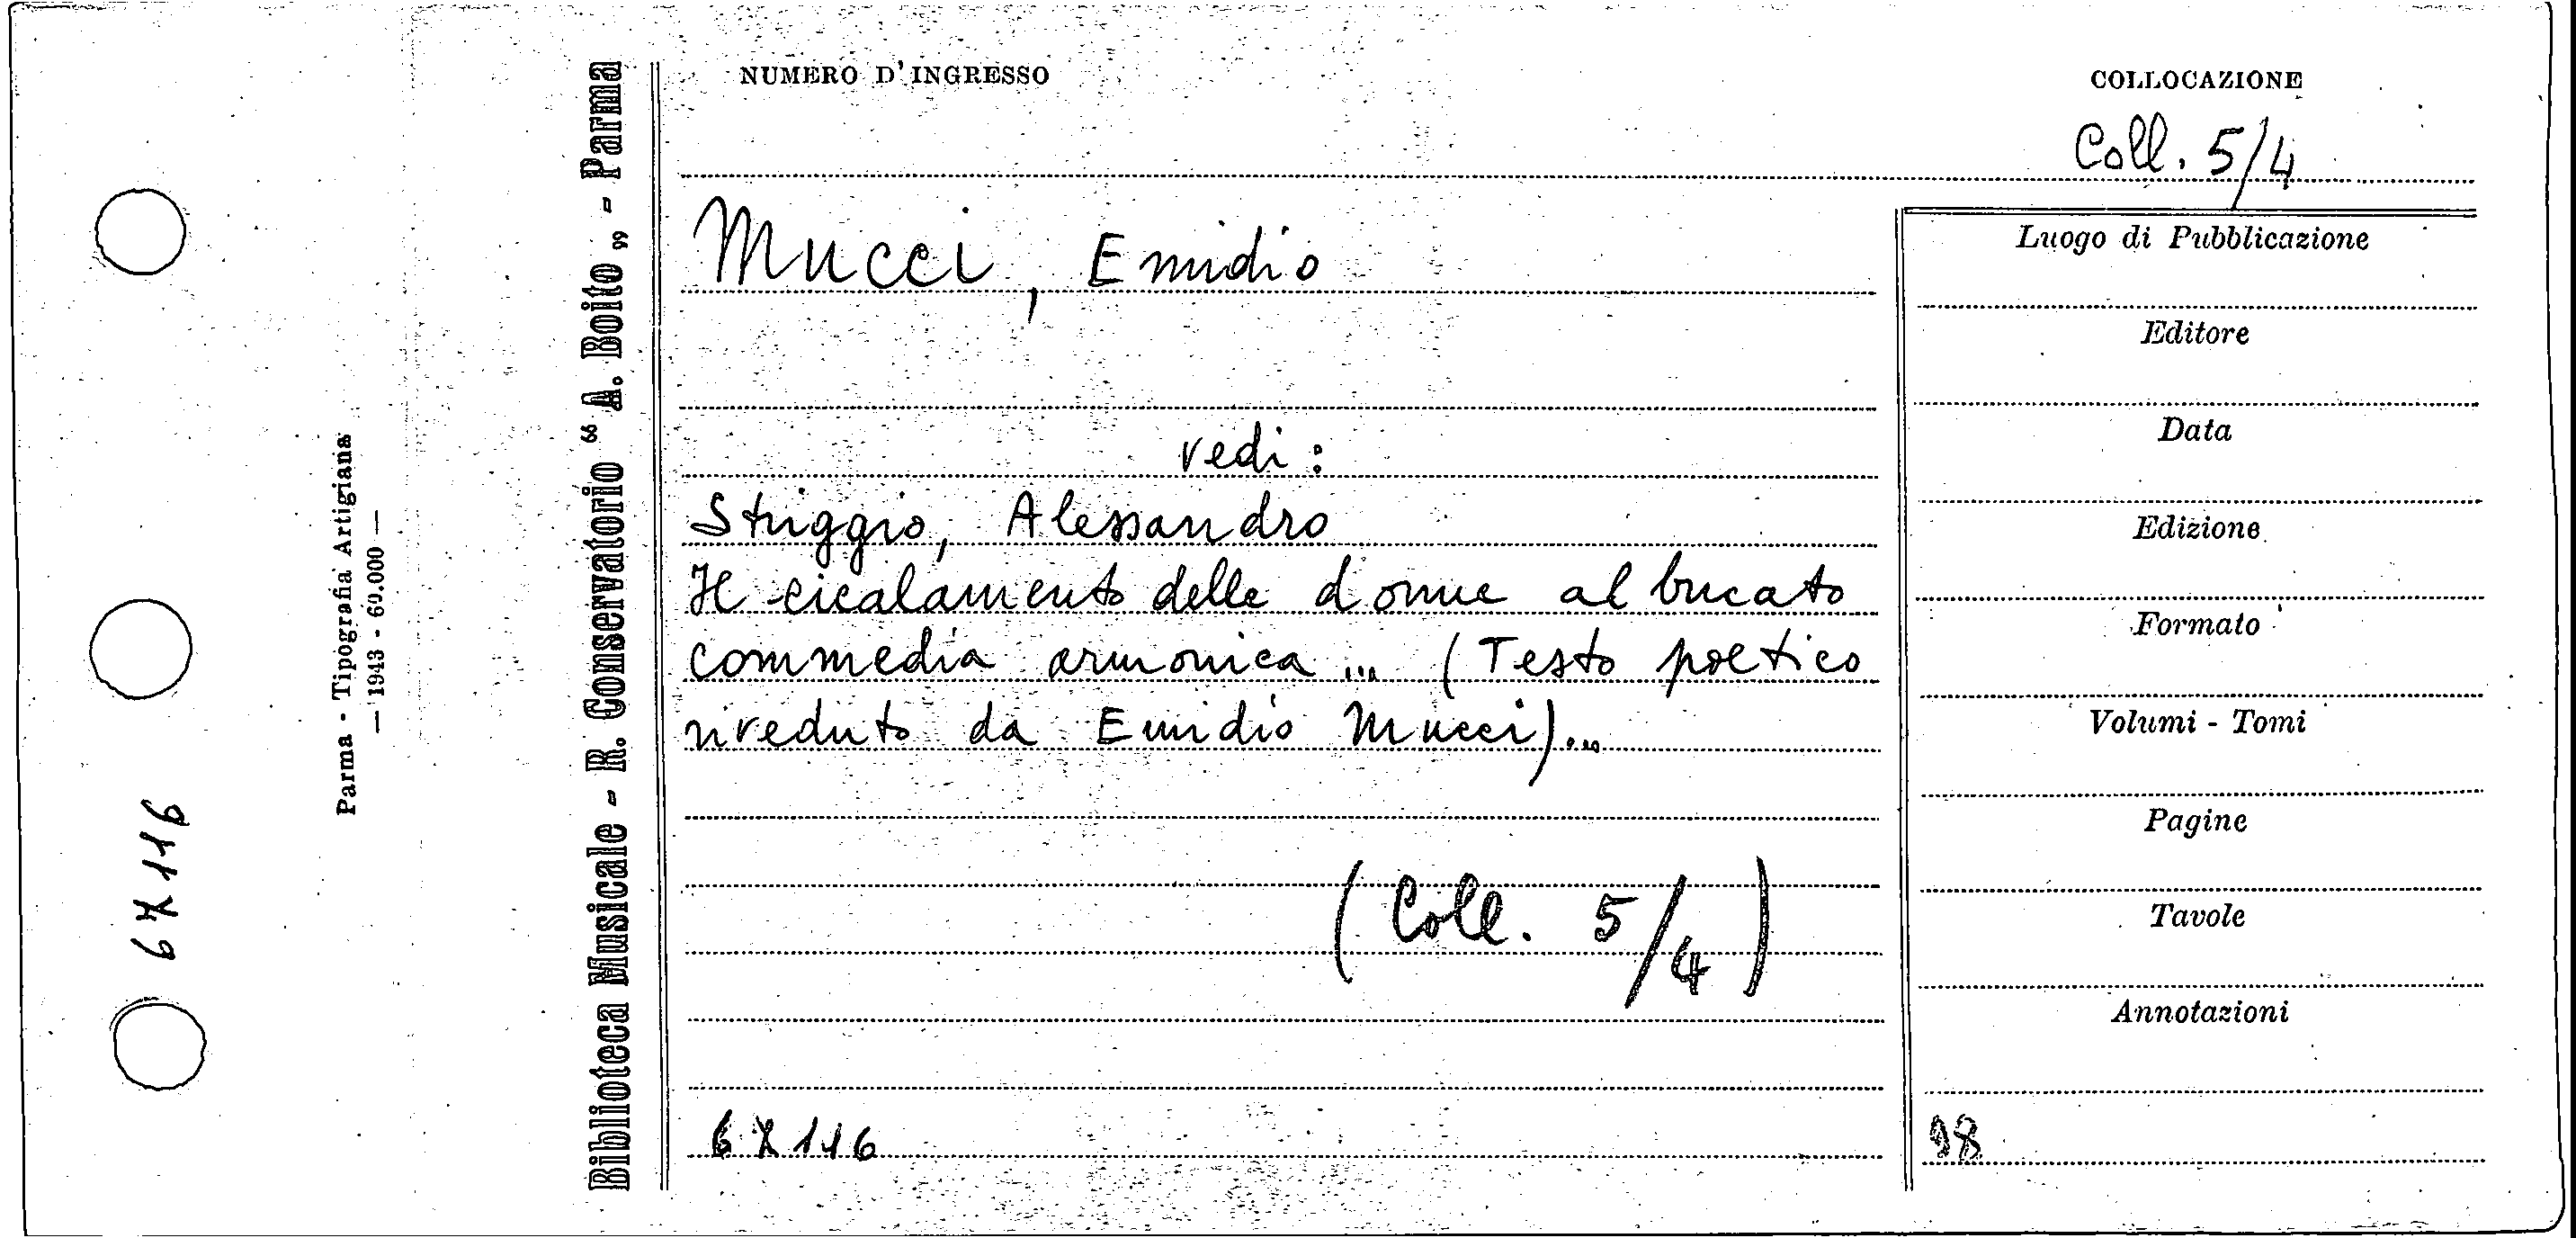 NUMERO D'INGRESSO
COLLOCAZIONE
Coll. 5/4
Mucci, Emidio
vedi:
Striggio, Alessandro
Il cicalamento delle donne al bucato
commedia armonica ... (Testo poetico
riveduto da Emidio Mucci)...
(Coll. 5/4)
67116
Luogo di Pubblicazione
Editore
Data
Edizione
Formato
Volumi - Tomi
Pagine
Tavole
Annotazioni
98
Biblioteca Musicale - R. Conservatorio "A. Boito„ - Parma
Parma - Tipografia Artigiana
— 1943 - 60.000 —
67116